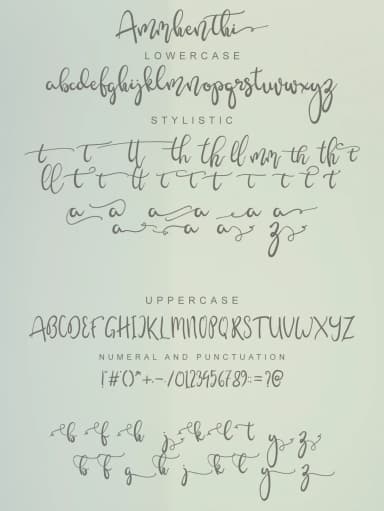 Ammhenthi
LOWERCASE
abcdefghijklmnopqrstuvwxyz
STYLISTIC
t t tt th th ll mm th th t
ll t t tt t t t t t t t
a a a a a a
a a a z
UPPERCASE
ABCDEFGHIJKLMNOPQRSTUVWXYZ
NUMERAL AND PUNCTUATION
!"#'()*+,-./0123456789:;=?@
b f h j k l t y z
b f g h j k t y z